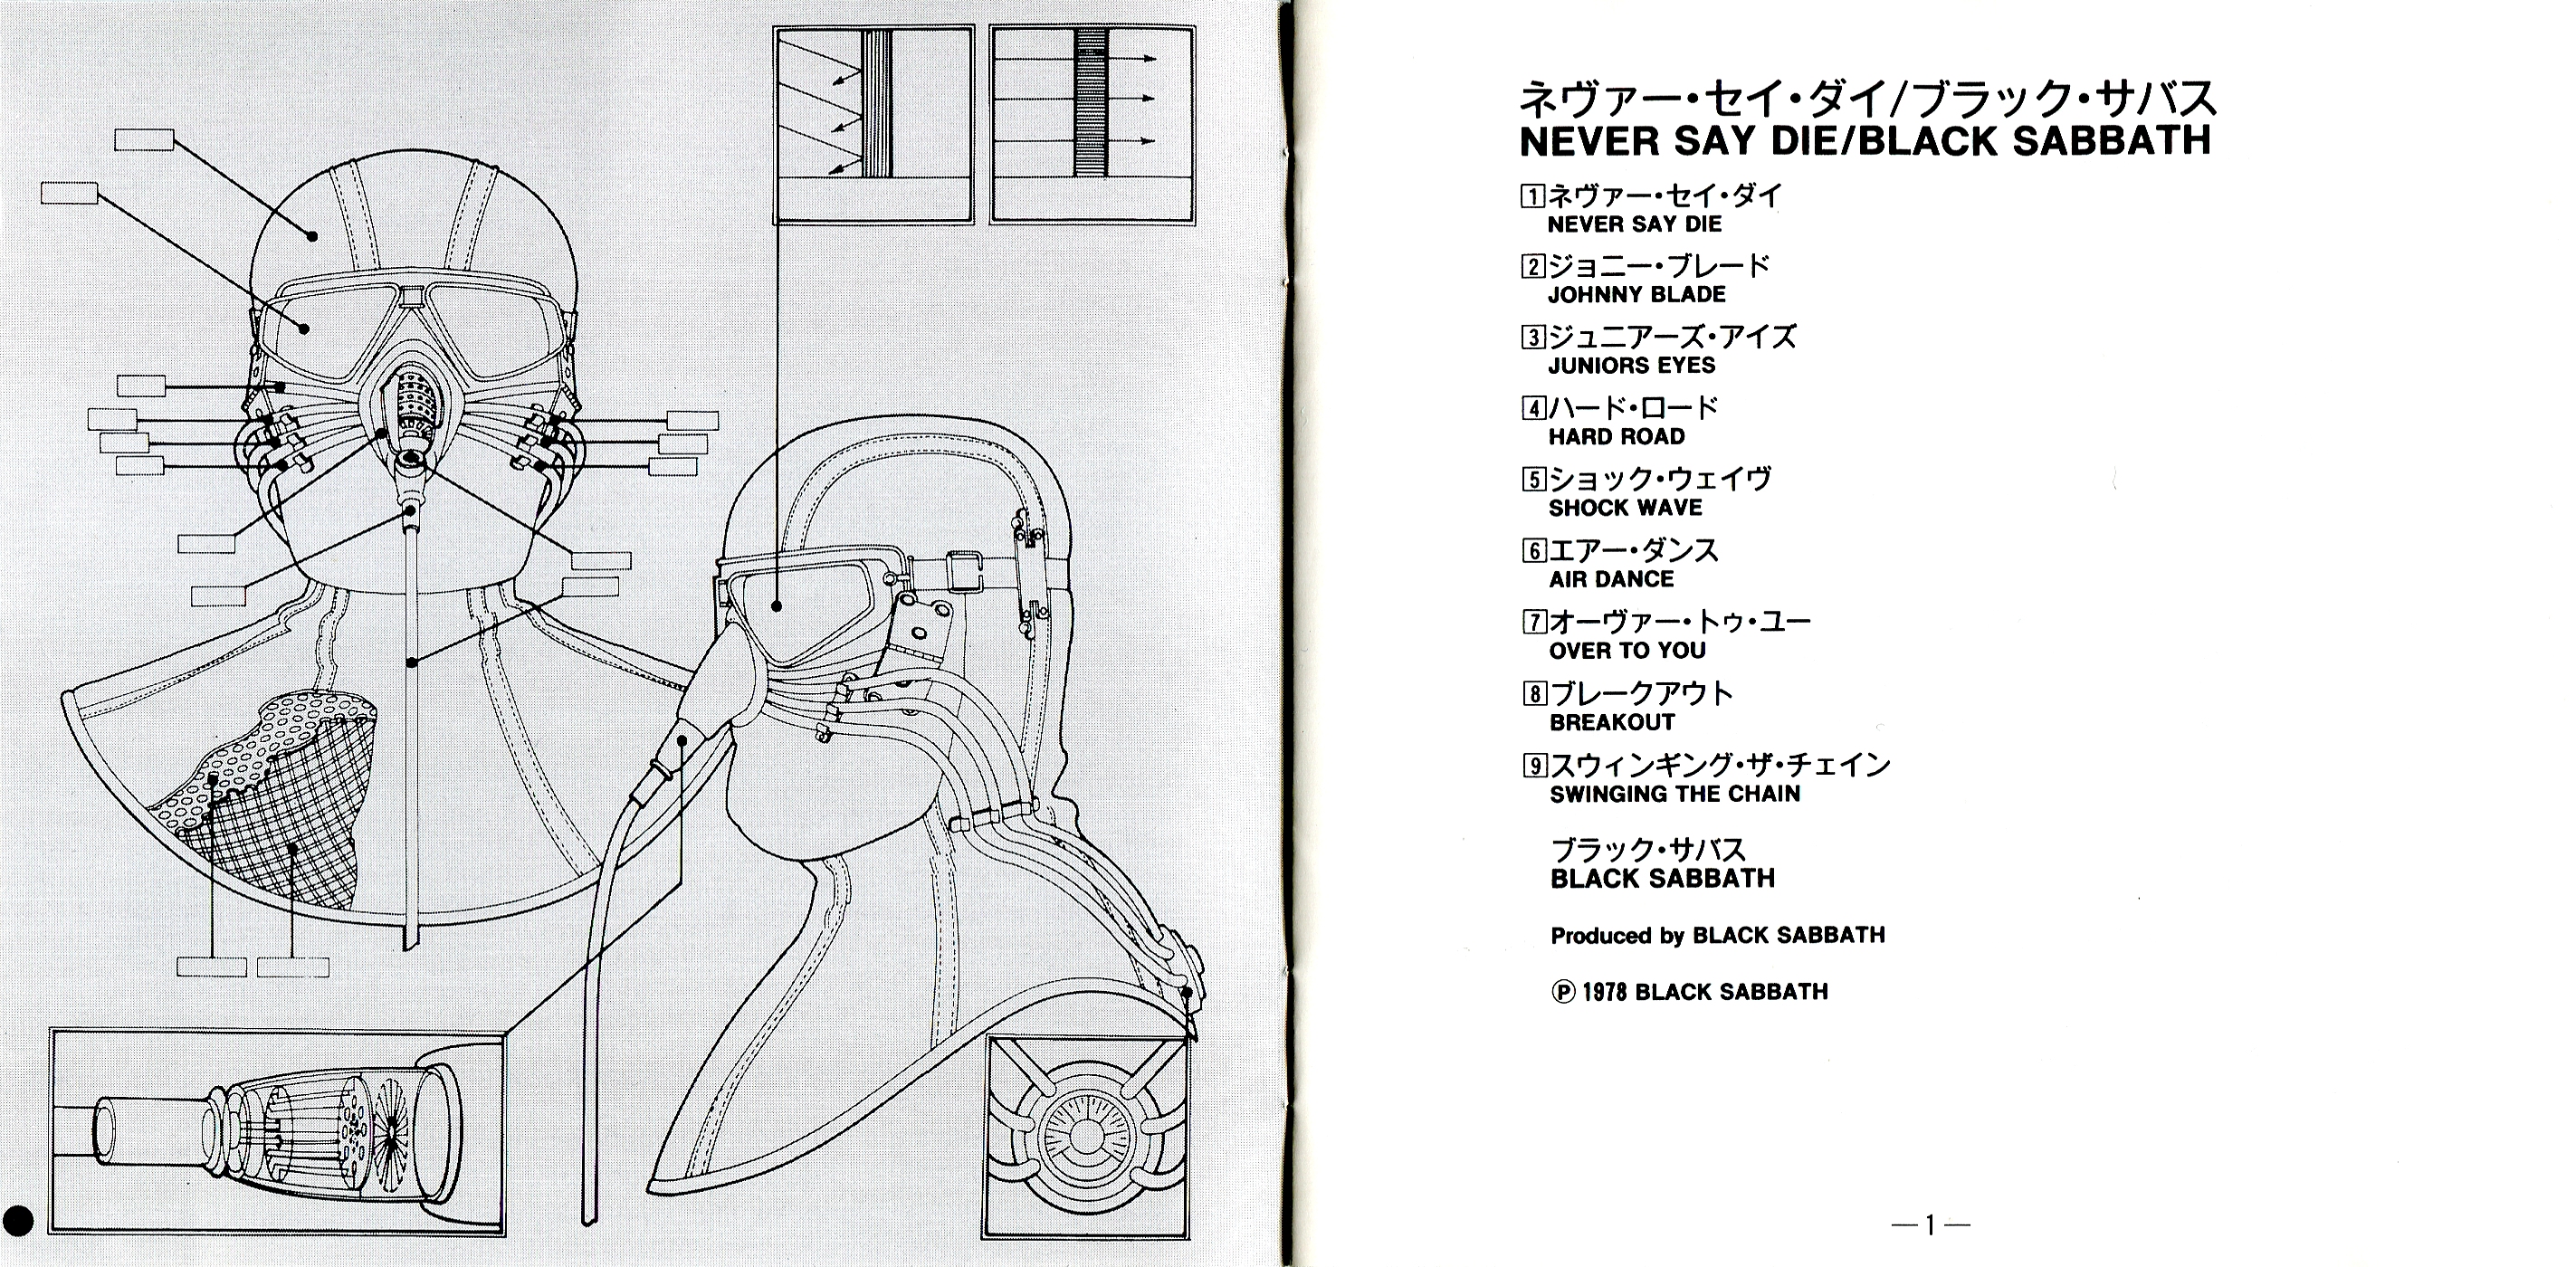 ネヴァー・セイ・ダイ/ブラック・サバス
NEVER SAY DIE/BLACK SABBATH
1 ネヴァー・セイ・ダイ
NEVER SAY DIE
2 ジョニー・ブレード
JOHNNY BLADE
3 ジュニアーズ・アイズ
JUNIORS EYES
4 ハード・ロード
HARD ROAD
5 ショック・ウェイヴ
SHOCK WAVE
6 エアー・ダンス
AIR DANCE
7 オーヴァー・トゥ・ユー
OVER TO YOU
8 ブレークアウト
BREAKOUT
9 スウィンギング・ザ・チェイン
SWINGING THE CHAIN
ブラック・サバス
BLACK SABBATH
Produced by BLACK SABBATH
Ⓟ 1978 BLACK SABBATH
—1—